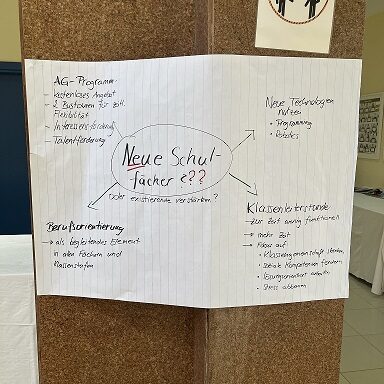 AG-Programm
- kostenloses Angebot
- 2 Bustouren für zeitl.
Flexibilität
- Interessensförderung
Talentförderung
Neue Technologien
nutzen
• Programming
• Robotics
Neue Schul-
fächer???
oder existierende verstärken?
Berufsorientierung
→ als begleitendes Element
in den Fächern und
Klassenstufen
Klassenleiterstunde
- zur Zeit wenig funktionell
→ mehr Zeit
→ Fokus auf
• Klassengemeinschaft stärken
• soziale Kompetenzen fördern
• lösungsorientiert arbeiten
• Stress abbauen